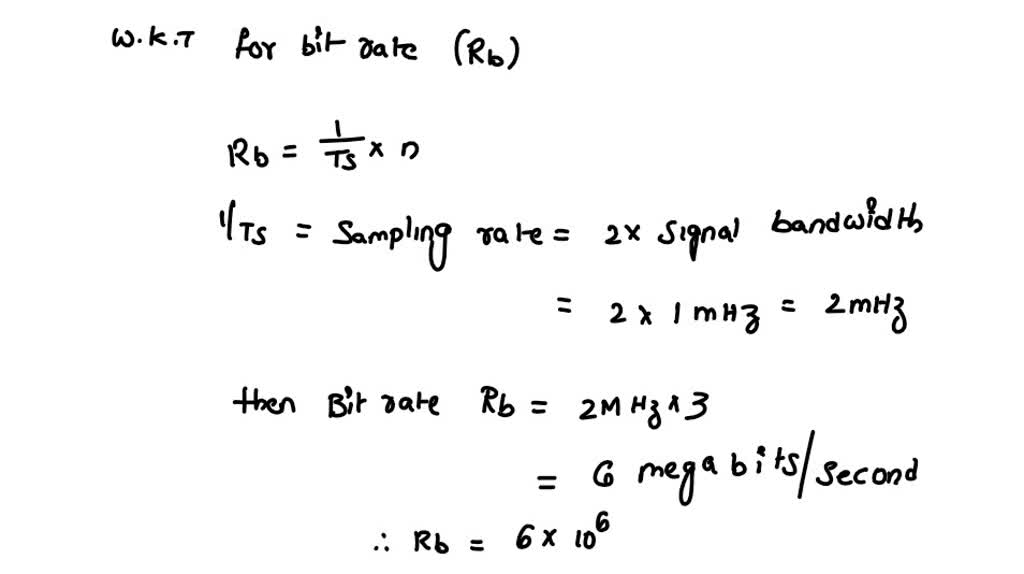 w.k.T for bit rate (Rb)
Rb = 1/Ts x n
1/Ts = Sampling rate = 2x Signal bandwidth
= 2 x 1 mHz = 2mHz
then Bit rate Rb = 2MHz x 3
= 6 mega bits/second
∴ Rb = 6 x 10^6